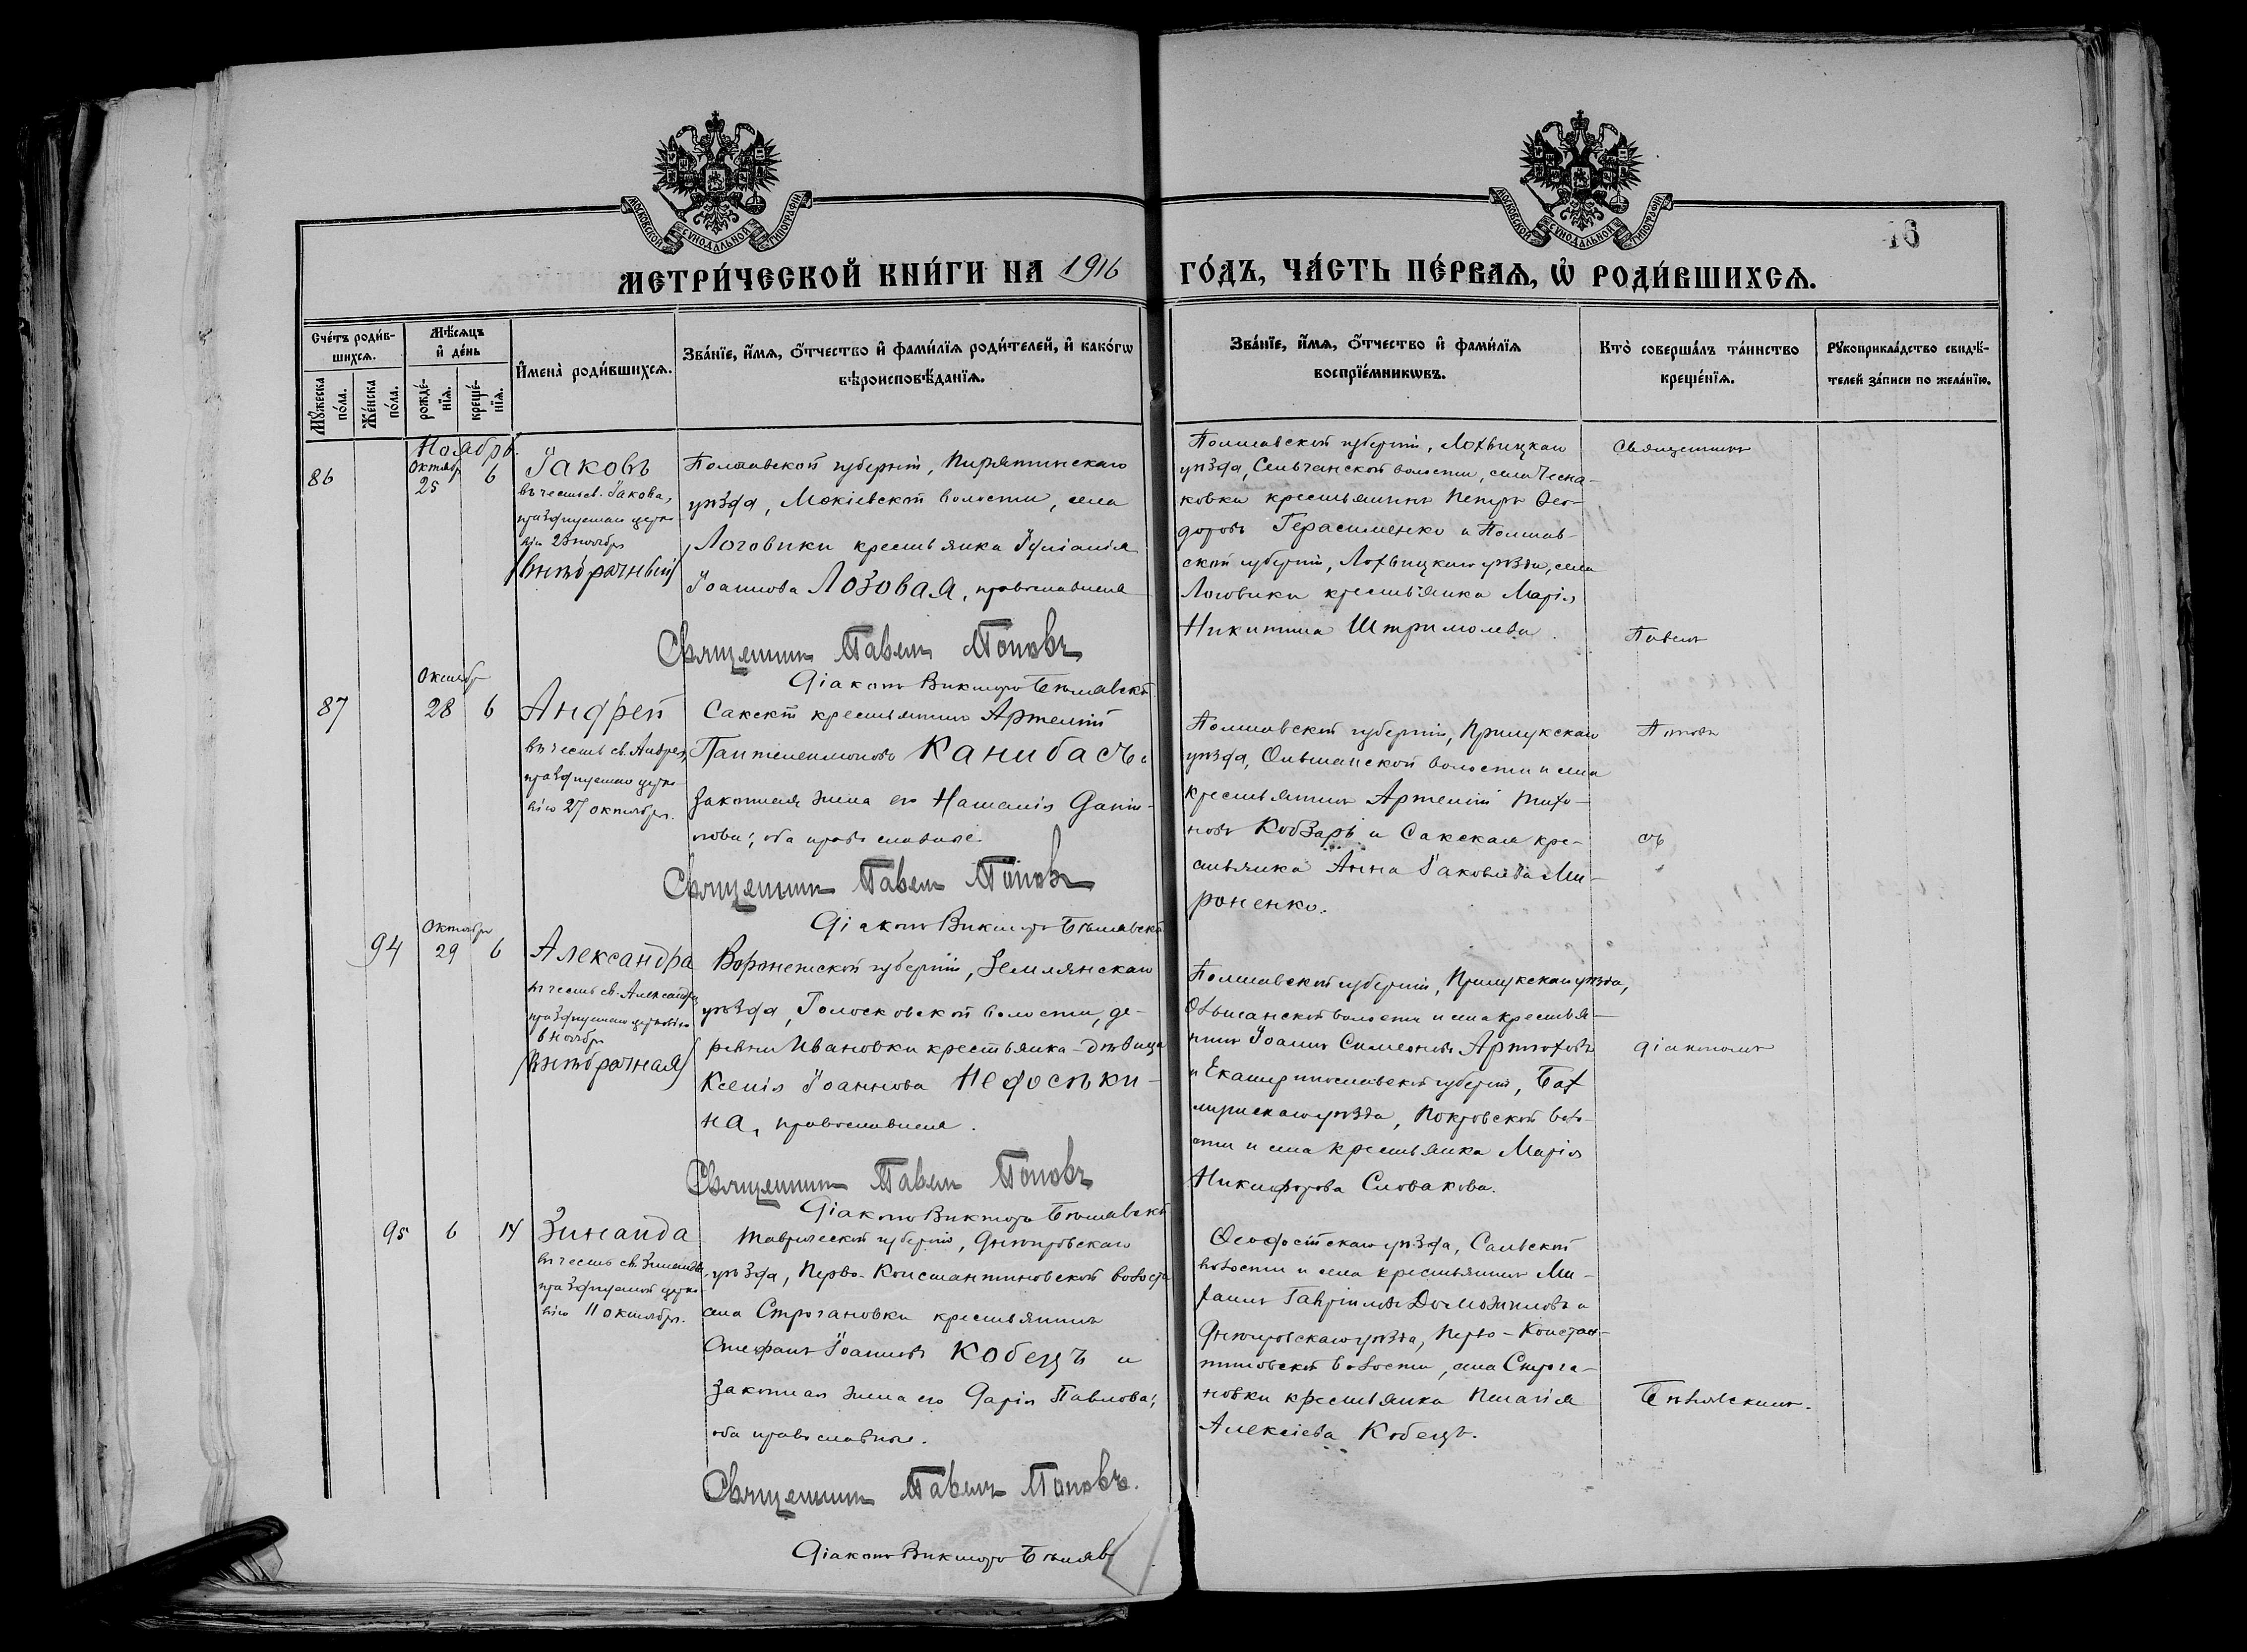 МОСКОВСКОЙ СѴНОДАЛЬНОЙ ТИПОГРАФІИ
МОСКОВСКОЙ СѴНОДАЛЬНОЙ ТИПОГРАФІИ
16
МЕТРИ́ЧЕСКОЙ КНИ́ГИ НА 1916 ГО́ДЪ, ЧА́СТЬ ПЕ́РВАѦ, Ѡ҆ РОДИ́ВШИХСѦ.
Сче́тъ роди́в-
шихсѧ.
Мѹ́жеска по́ла.
Же́нска по́ла.
Мѣ́сѧцъ
и҆ де́нь
рожде́-
нїѧ.
креще́-
нїѧ.
И҆мена̀ роди́вшихсѧ.
Зва́нїе, и҆́мѧ, ѻ҆́тчество и҆ фами́лїѧ роди́телей, и҆ како́гѡ
вѣроисповѣ́данїѧ.
Зва́нїе, и҆́мѧ, ѻ҆́тчество и҆ фами́лїѧ
воспрїе́мникѡвъ.
Кто̀ соверша́лъ та́инство
креще́нїѧ.
Рꙋкоприкла́дство свидѣ́-
телей за́писи по жела́нїю.
Ноябрь.
86
Октябр
25
6
Іаковъ
въ честь св. Іакова,
празднуемаго церко-
вію 23 ноября
/внѣбрачный/
Полтавской губерніи, Пирятинскаго
уѣзда, Мокіевской волости, села
Логовики крестьянка Іуліанія
Іоаннова Лозовая, православная
Священникъ Павелъ Поповъ
Діаконъ Викторъ Бѣлявскій
Полтавской губерніи, Лохвицкаго
уѣзда, Сенчанской волости, села Чесна-
ковки крестьянинъ Петръ Ѳео-
доровъ Герасименко и Полтав-
ской губерніи, Лохвицкаго уѣзда, села
Логовики крестьянка Марія
Никитина
Священникъ
Павелъ
Октябр
87
28
6
Андрей
въ честь св. Андрея,
празднуемаго церко-
вію 27 октября.
Сакскій крестьянинъ Артемій
Пантелеимоновъ Канибасъ и
законная жена его Наталія Дани-
лова; оба православные.
Священникъ Павелъ Поповъ
Діаконъ Викторъ Бѣлявскій
Полтавской губерніи, Прилукскаго
уѣзда, Ольшанской волости и села
крестьянинъ Артемій Тихо-
новъ Кобзарь и Сакская кре-
стьянка Анна Іаковлева Ми-
роненко.
Поповъ
съ
94
Октября
29
6
Александра
въ честь св. Александры
празднуемой церковію
6 ноября
/внѣбрачная/
Воронежской губерніи, Землянскаго
уѣзда, Голосковской волости, де-
ревни Ивановки крестьянка-дѣвица
Ксенія Іоаннова Недосѣки-
на, православная.
Священникъ Павелъ Поповъ
Діаконъ Викторъ Бѣлявскій
Полтавской губерніи, Прилукскаго уѣзда,
Ольшанской волости и села крестья-
нинъ Іоаннъ Симеоновъ Артюховъ
и Екатеринославской губерніи, Бах-
мутскаго уѣзда, Покровской воло-
сти и села крестьянка Марія
Никифорова Словакова.
діакономъ
95
6
14
Зинаида
въ честь св. Зинаиды
празднуемой церко-
вію 11 октября.
Таврической губерніи, Днѣпровскаго
уѣзда, Перво-Константиновской волости
села Строгановки крестьянинъ
Стефанъ Іоанновъ Кобецъ и
законная жена его Дарія Павлова;
оба православные.
Священникъ Павелъ Поповъ.
Діаконъ Викторъ Бѣляв
Ѳеодосійскаго уѣзда,
волости и села крестьянинъ Ми-
хаилъ Гавріиловъ Доможиловъ и
Днѣпровскаго уѣзда, Перво-Констан-
тиновской волости, села Строга-
новки крестьянка Пелагія
Алексіева Кобецъ.
Бѣлявскимъ.